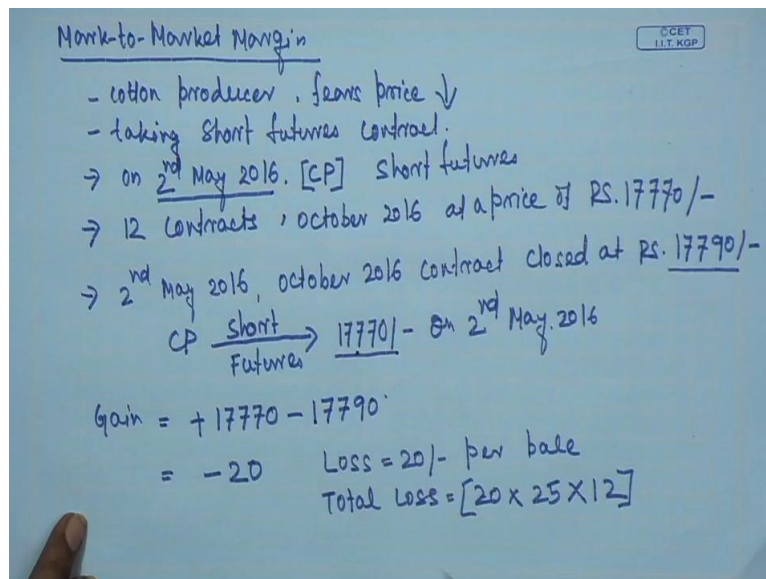 Mark-to-Market Margin
©CET
I.I.T. KGP
- cotton producer, fears price ↓
- taking Short futures contract.
→ on 2nd May 2016. [CP] Short futures
→ 12 contracts, October 2016 at a price of RS. 17770/-
→ 2nd May 2016, October 2016 contract closed at RS. 17790/-
CP Short Futures → 17770/- on 2nd May. 2016
Gain = + 17770 - 17790
= - 20 Loss = 20/- per bale
Total Loss = [20 x 25 x 12]